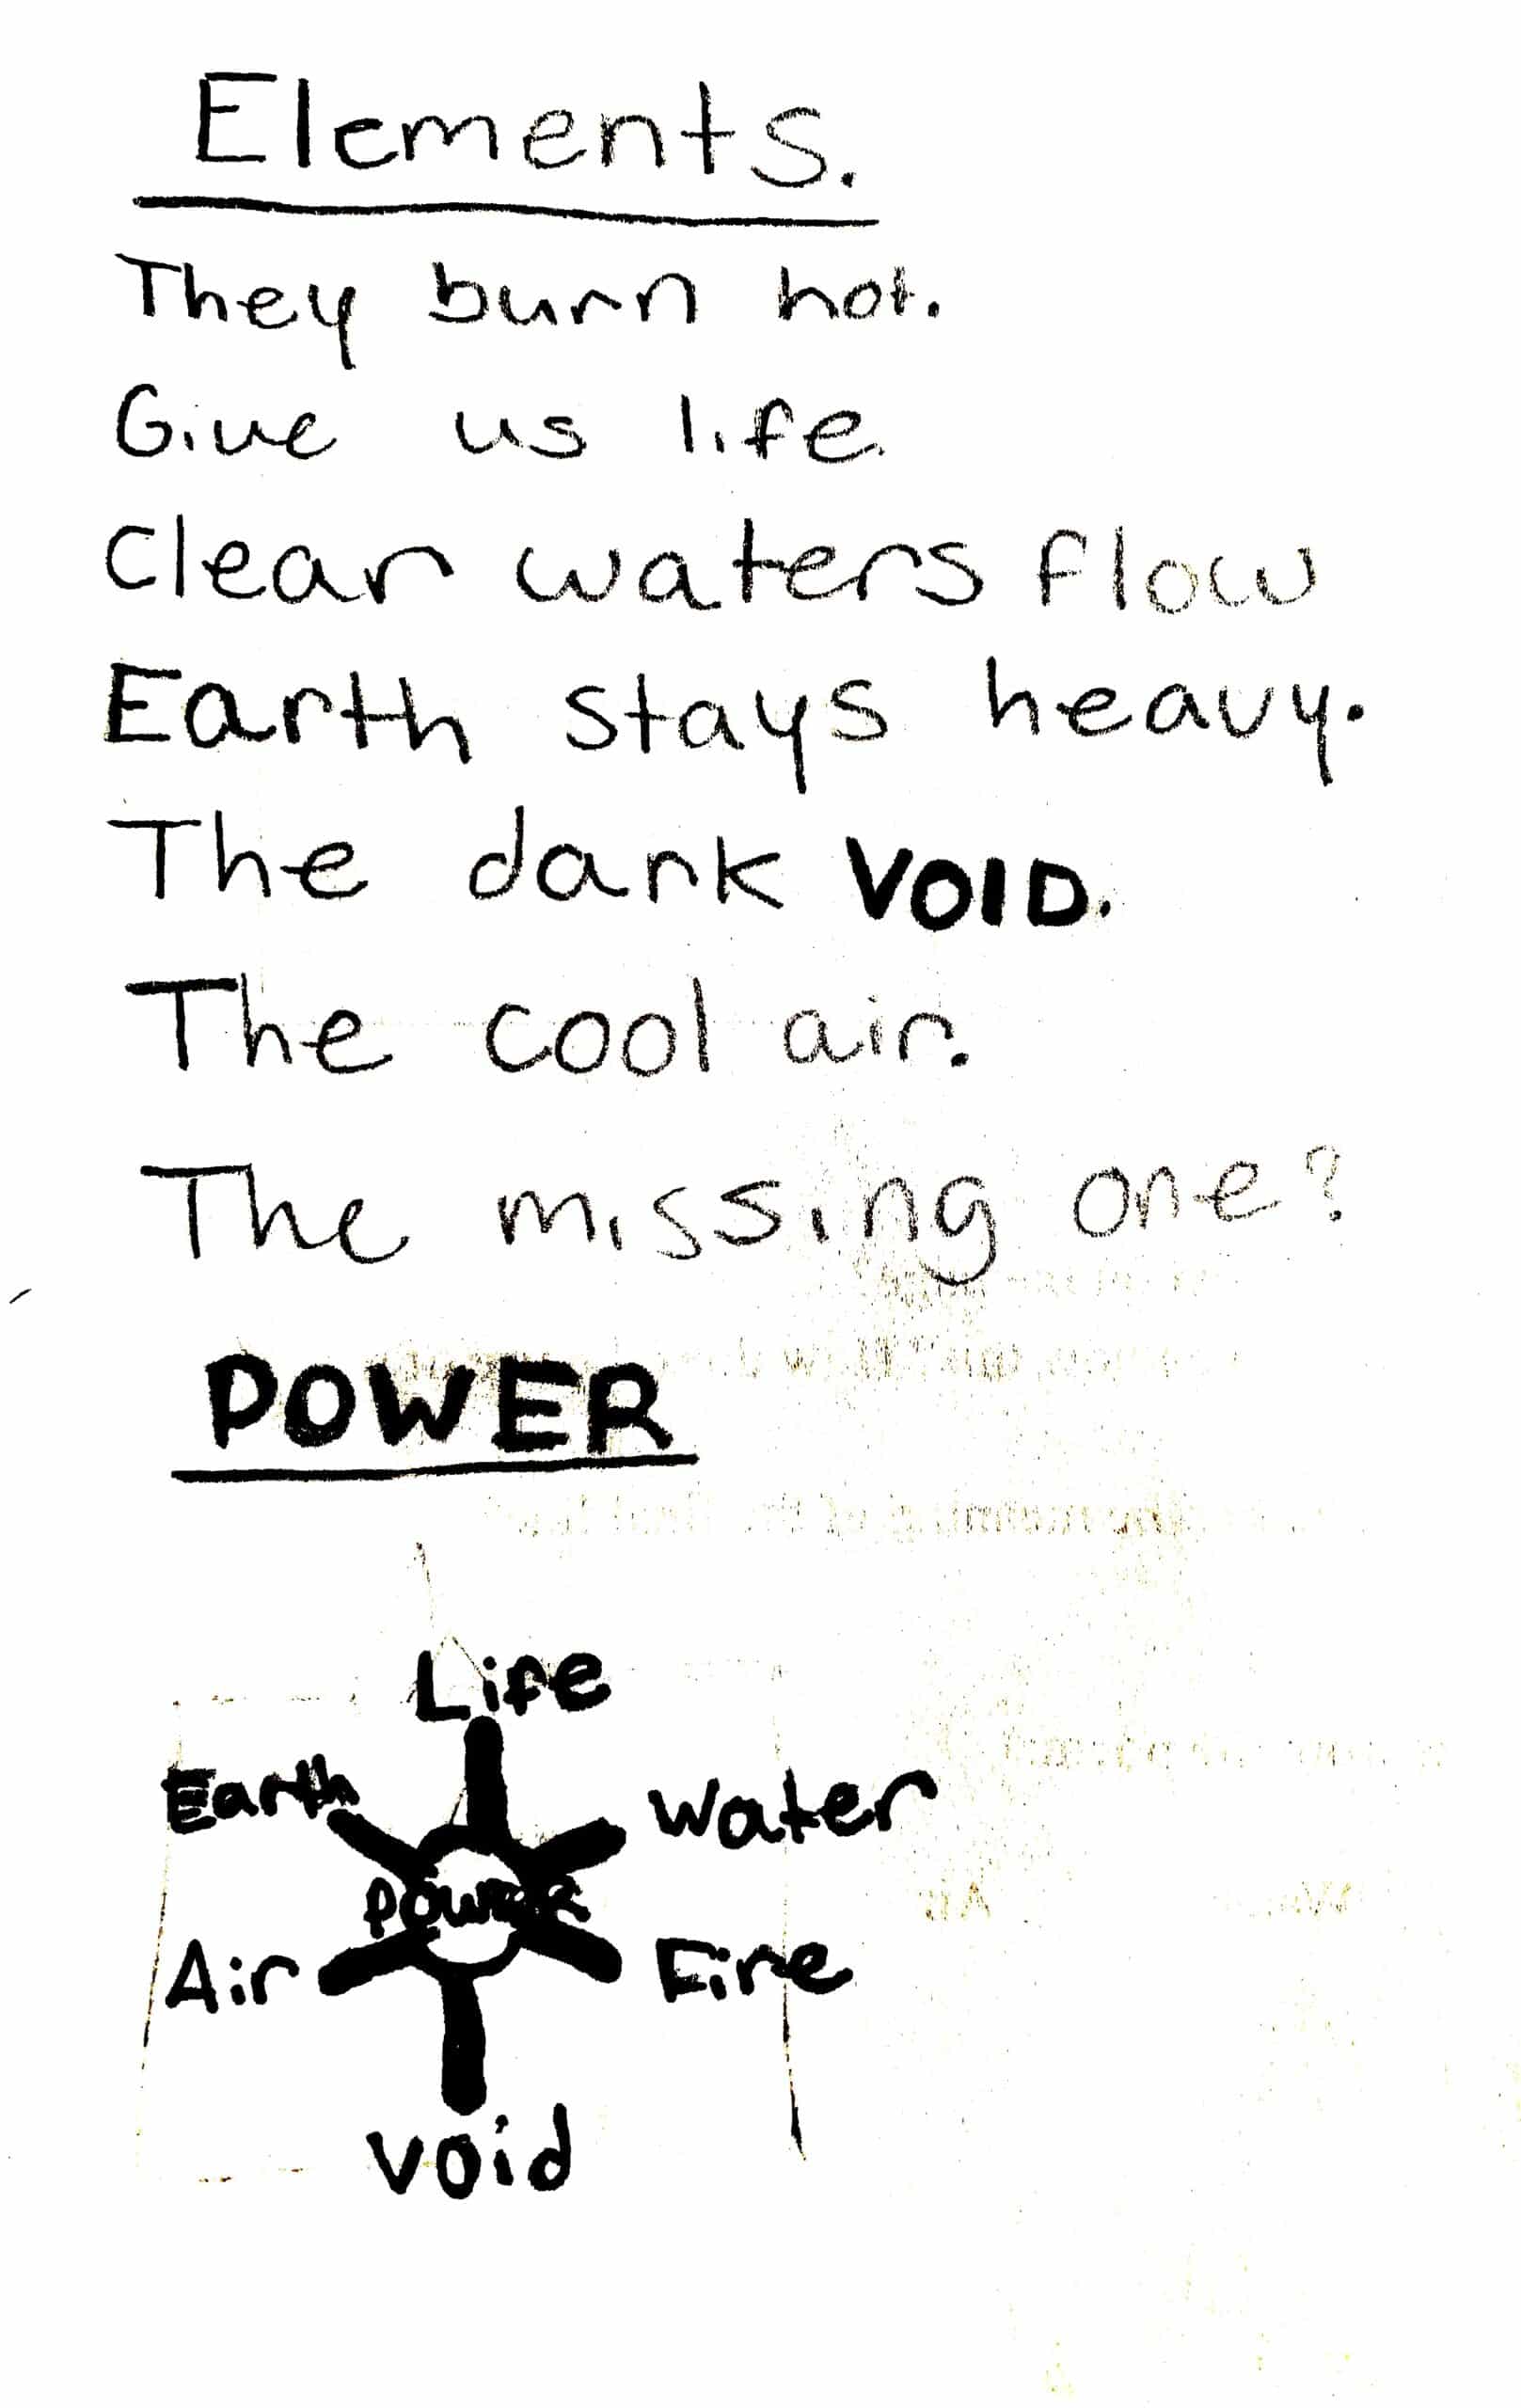 Elements.
They burn hot.
Give us life.
Clear waters flow
Earth stays heavy.
The dark VOID.
The cool air.
The missing one?
POWER
Life
Earth
Water
POWER
Air
Fire
Void